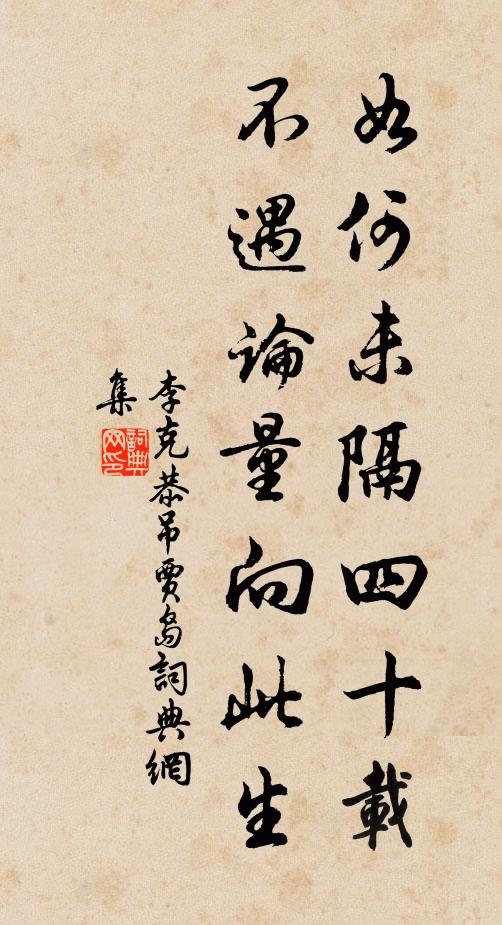 如何未隔四十載
不遇論量向此生
李克恭吊賈島詞典網
集
詞典网印